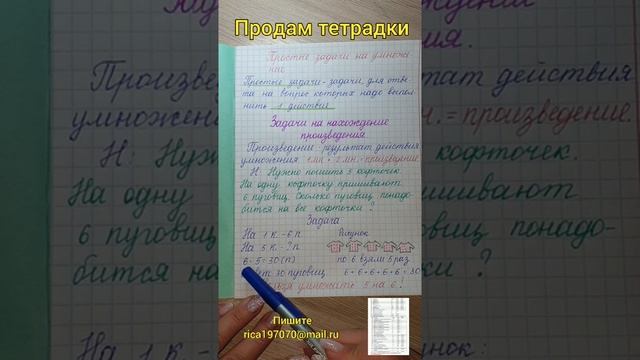 Продам тетрадки
Простые задачи на умноже
ние
Простые задачи - задачи, для отве
та на вопрос которых надо выпол
нить 1 действие
Задачи на нахождение
произведения.
Произведение результат действия
умножения 1 мн. · 2 мн. = произведение
Н: Нужно пошить 5 кофточек.
На одну кофточку пришивают
6 пуговиц. Сколько пуговиц понадо-
бится на все кофточки?
Задача
На 1 к. - 6 п. Рисунок
На 5 к. - ? п.
6 · 5 = 30 (п) по 6 взяли 5 раз
30 пуговиц 6 + 6 + 6 + 6 + 6 = 30
умножать 5 на 6!
Пишите
rica197070@mail.ru